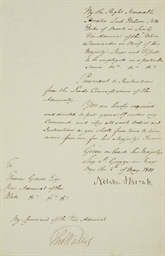 By the Right Honorable
Horatio Lord Nelson, KB
Duke of Bronté in Sicily
Vice Admiral of the Blue
Commander in Chief of His
Majesty's Ships and Vessels
to be employed on a particular
Service &c. &c. &c.
Pursuant to Instructions
from the Lords Commissioners of the
Admiralty
You are hereby required
and directed to put yourself under my
Command and obey all such Orders and
Instructions as you shall from time to time
receive from me for His Majesty's Service
Given on board His Majesty's
Ship St. George
of May 1801
Nelson & Bronte
To
Thomas Graves Esqr
Rear Admiral of the
White &c. &c. &c.
By Command of the Vice Admiral
Tho Wallis